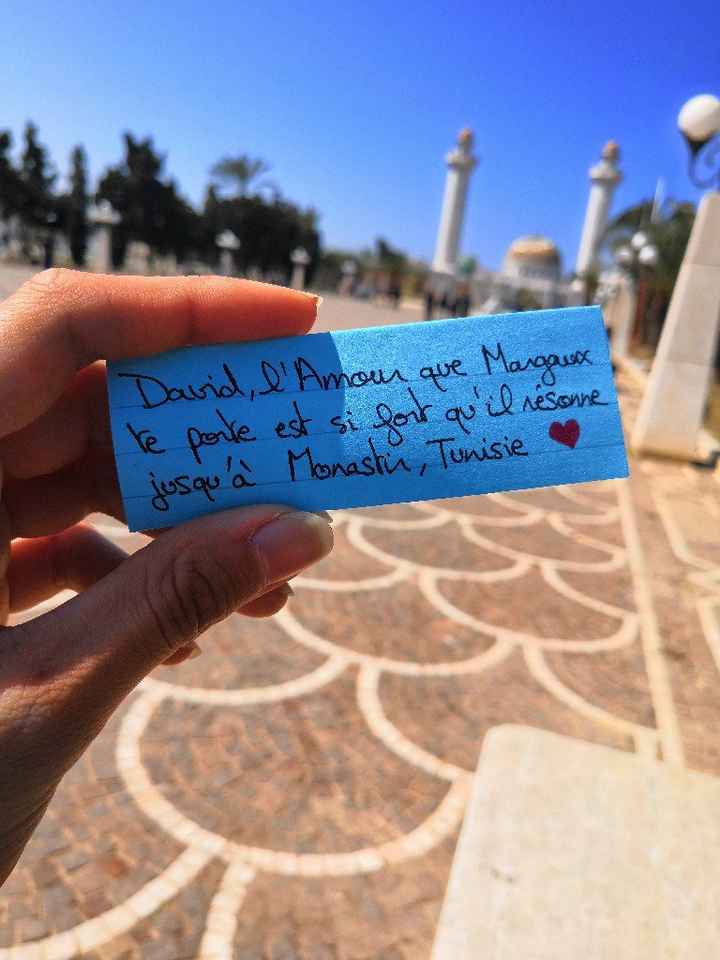 David, l'Amour que Margaux
te porte est si fort qu'il résonne
jusqu'à Monastir, Tunisie ♥